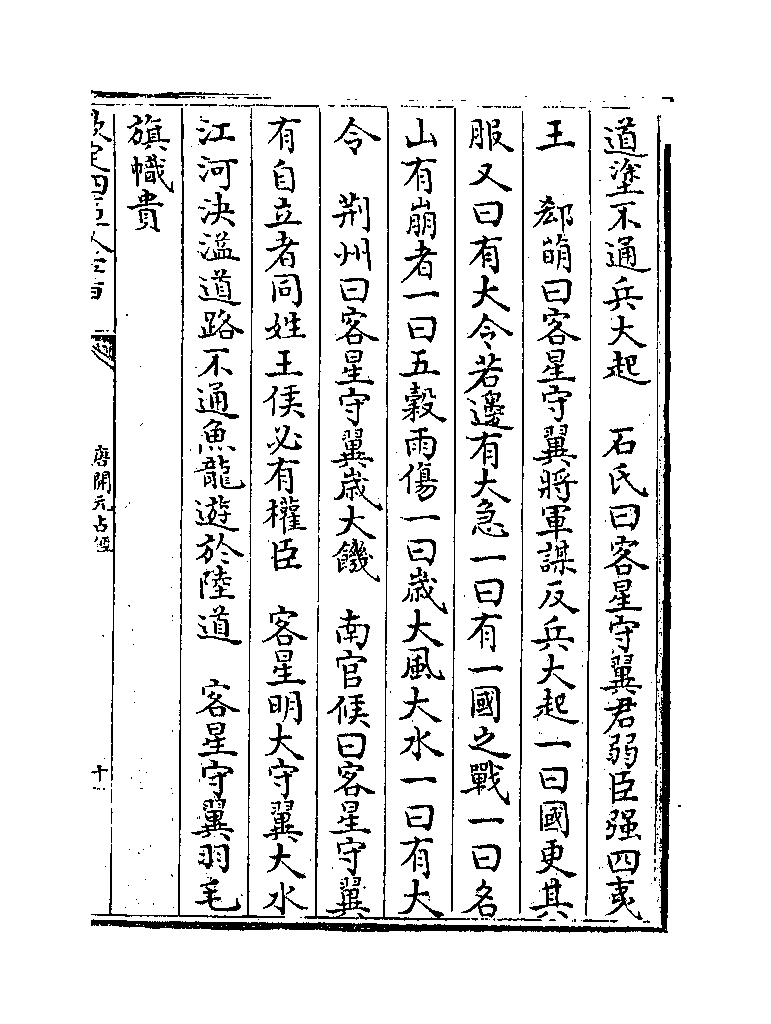 道塗不通兵大起　石氏曰客星守翼君弱臣强四夷
王　郄萌曰客星守翼將軍謀反兵大起一曰國更其
服又曰有大令若邊有大急一曰有一國之戰一曰名
山有崩者一曰五穀雨傷一曰歲大風大水一曰有大
令　荆州曰客星守翼歲大饑　南官候曰客星守翼
有自立者同姓王侯必有權臣　客星明大守翼大水
江河決溢道路不通魚龍遊於陸道　客星守翼羽毛
旗幟貴
欽定四庫全書
唐開元占經
十